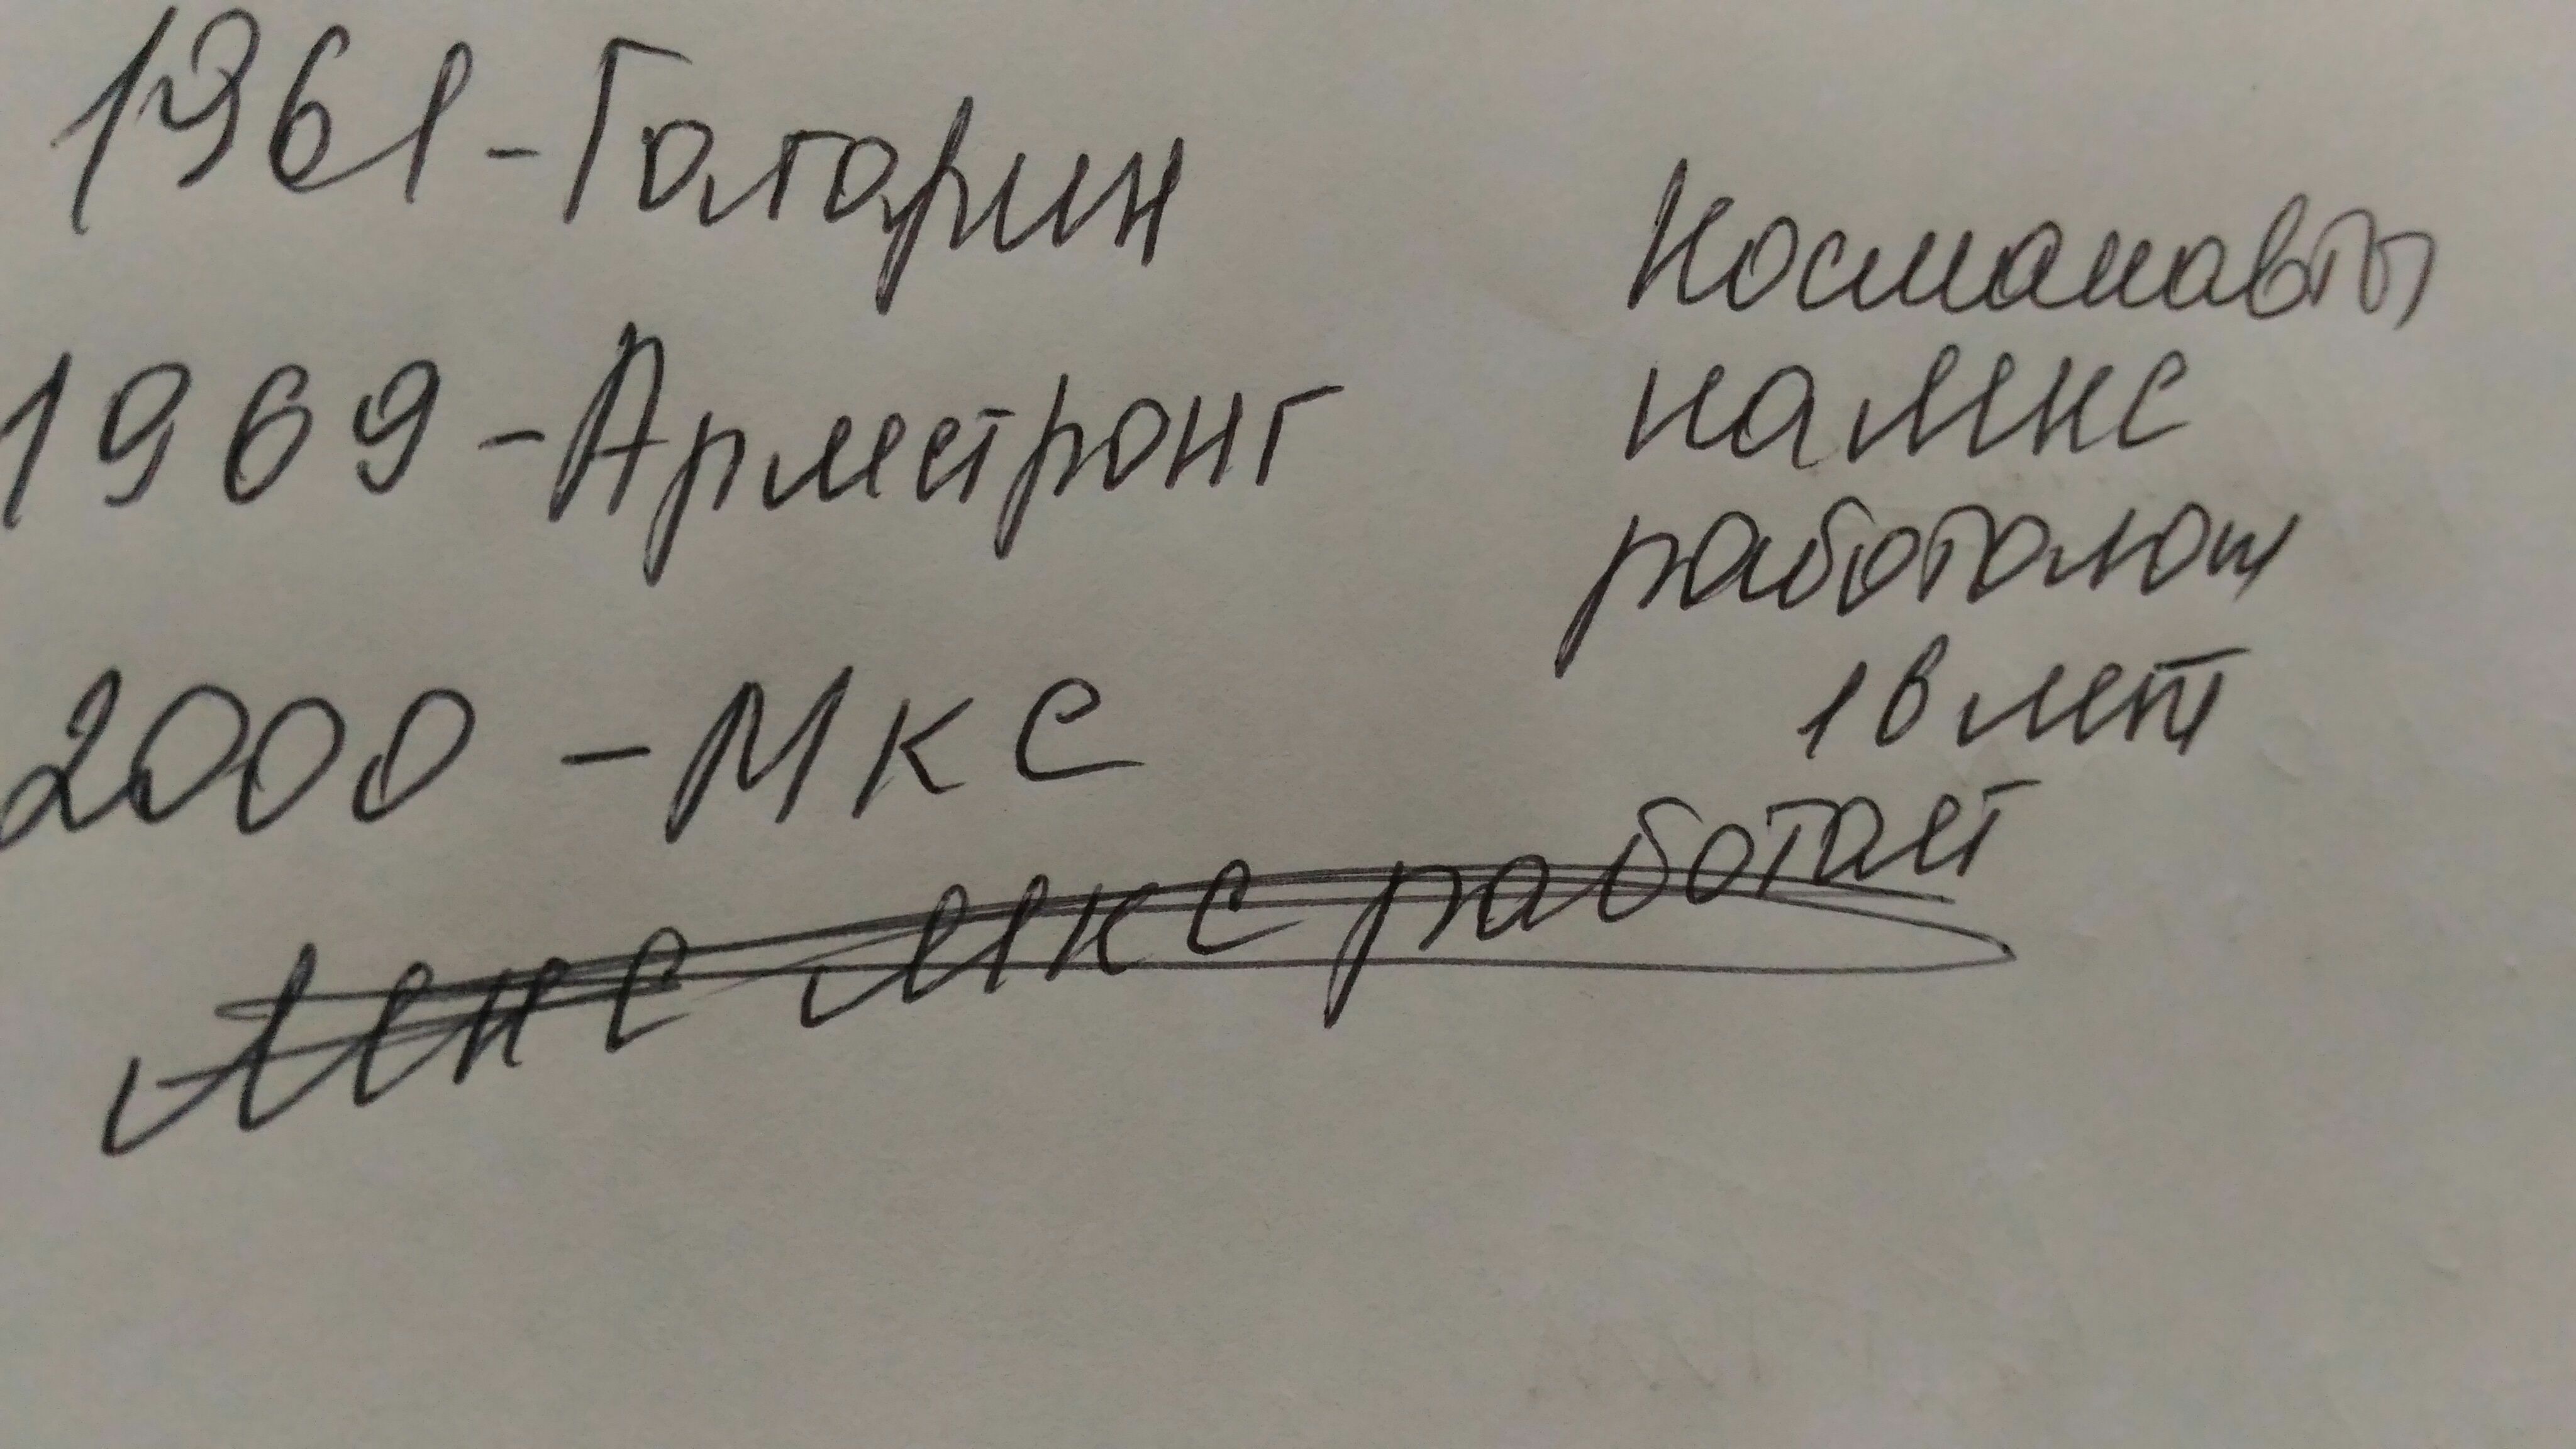 1961-Гагарин
1969-Армстронг
2000-МКС
Косманавты
на МКС
работают
18 лет
МКС МКС работает